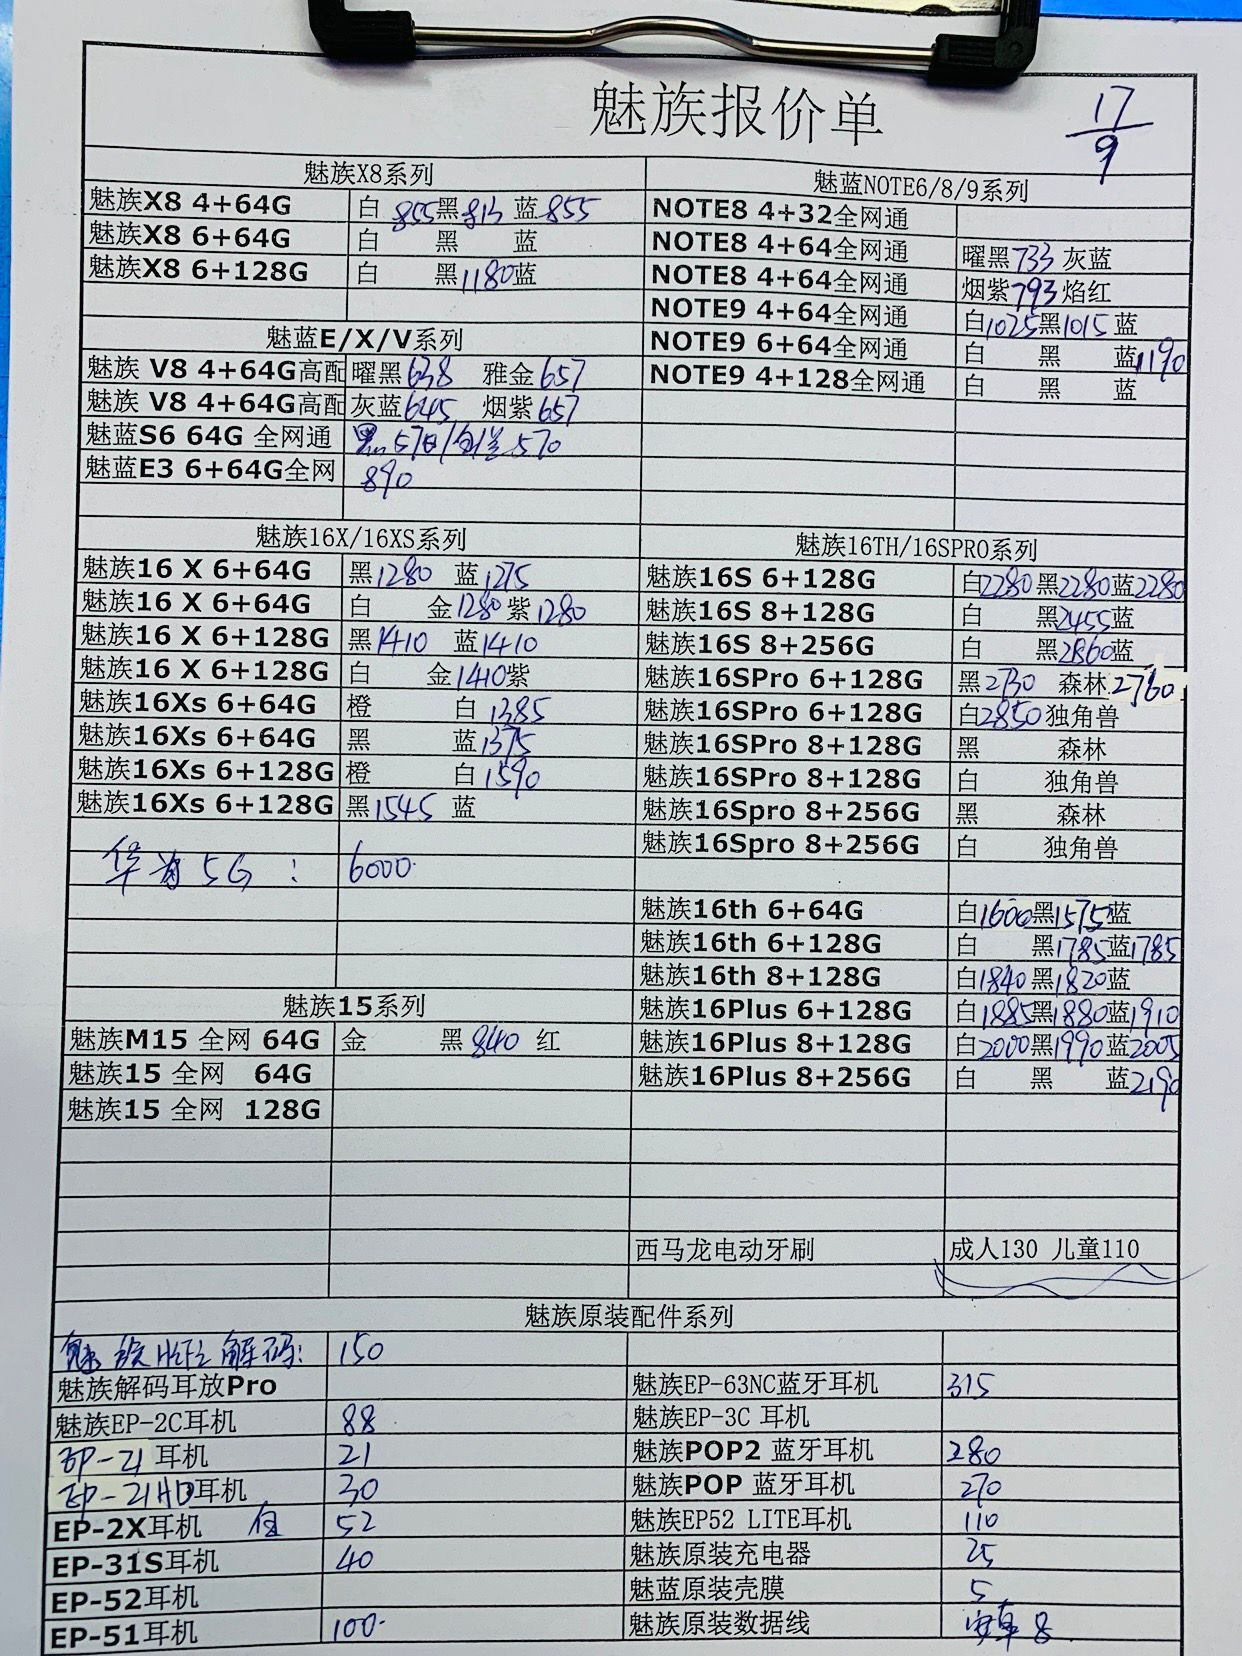 魅族报价单
17/9
魅族X8系列
魅族X8 4+64G 白 855 黑 813 蓝 855
魅族X8 6+64G 白 黑 蓝
魅族X8 6+128G 白 黑 1180 蓝
魅蓝E/X/V系列
魅族 V8 4+64G高配 曜黑 638 雅金 657
魅族 V8 4+64G高配 灰蓝 645 烟紫 657
魅蓝S6 64G 全网通 570
魅蓝E3 6+64G全网 890
魅蓝NOTE6/8/9系列
NOTE8 4+32全网通
NOTE8 4+64全网通 曜黑 733 灰蓝
NOTE8 4+64全网通 烟紫 793 焰红
NOTE9 4+64全网通 白 1025 黑 1015 蓝
NOTE9 6+64全网通 白 黑 蓝 1190
NOTE9 4+128全网通 白 黑 蓝
魅族16X/16XS系列
魅族16 X 6+64G 黑 1280 蓝 1275
魅族16 X 6+64G 白 金 1280 紫 1280
魅族16 X 6+128G 黑 1410 蓝 1410
魅族16 X 6+128G 白 金 1410 紫
魅族16Xs 6+64G 橙 白 1385
魅族16Xs 6+64G 黑 蓝 1375
魅族16Xs 6+128G 橙 白 1590
魅族16Xs 6+128G 黑 1545 蓝
华为5G: 6000
魅族16TH/16SPRO系列
魅族16S 6+128G 白 2280 黑 2280 蓝 2280
魅族16S 8+128G 白 黑 2455 蓝
魅族16S 8+256G 白 黑 2860 蓝
魅族16SPro 6+128G 黑 2730 森林 2760
魅族16SPro 6+128G 白 2850 独角兽
魅族16SPro 8+128G 黑 森林
魅族16SPro 8+128G 白 独角兽
魅族16Spro 8+256G 黑 森林
魅族16Spro 8+256G 白 独角兽
魅族16th 6+64G 白 1600 黑 1575 蓝
魅族16th 6+128G 白 黑 1785 蓝 1785
魅族16th 8+128G 白 1840 黑 1820 蓝
魅族16Plus 6+128G 白 1885 黑 1880 蓝 1910
魅族16Plus 8+128G 白 2000 黑 1990 蓝 2005
魅族16Plus 8+256G 白 黑 蓝 2190
魅族15系列
魅族M15 全网 64G 金 黑 840 红
魅族15 全网 64G
魅族15 全网 128G
西马龙电动牙刷 成人130 儿童110
魅族原装配件系列
魅族 解码: 150
魅族解码耳放Pro
魅族EP-2C耳机 88
EP-21 耳机 21
EP-21HD耳机 30
EP-2X耳机 52
EP-31S耳机 40
EP-52耳机
EP-51耳机 100
魅族EP-63NC蓝牙耳机 315
魅族EP-3C 耳机
魅族POP2 蓝牙耳机 280
魅族POP 蓝牙耳机 270
魅族EP52 LITE耳机 110
魅族原装充电器 25
魅蓝原装壳膜 5
魅族原装数据线 安卓 8